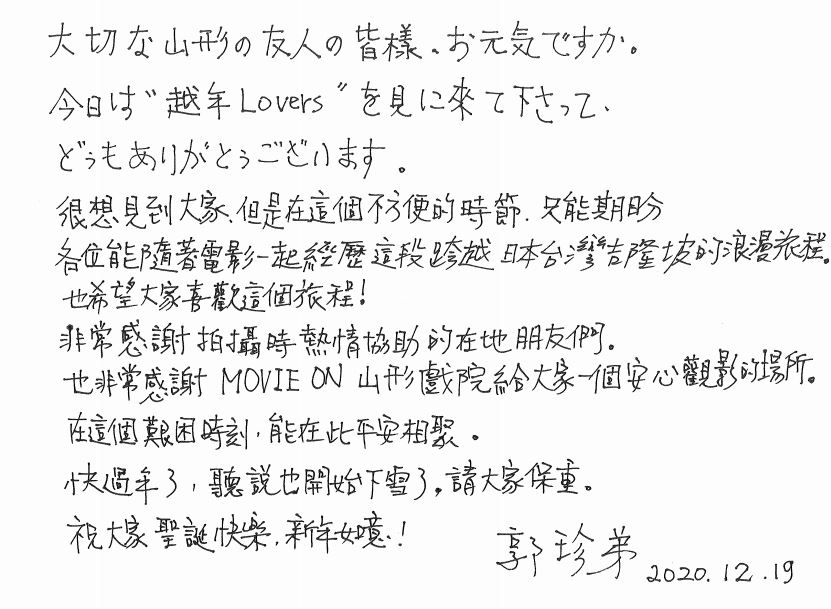 大切な山形の友人の皆様。お元気ですか。
今日は“越年Lovers”を見に來て下さって、
どうもありがとうございます。
很想見到大家，但是在這個不方便的時節，只能期盼
各位能隨著電影一起經歷這段跨越日本台灣吉隆坡的浪漫旅程。
也希望大家喜歡這個旅程！
非常感謝拍攝時熱情協助的在地朋友們。
也非常感謝 MOVIE ON 山形戲院給大家一個安心觀影的場所。
在這個艱困時刻，能在此平安相聚。
快過年了，聽說也開始下雪了。請大家保重。
祝大家聖誕快樂，新年如意！
郭珍弟 2020.12.19